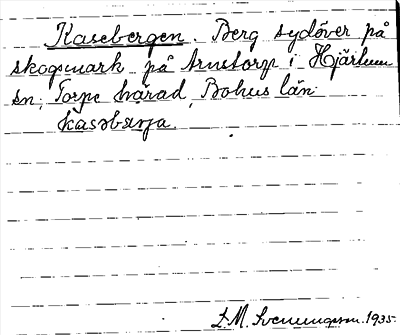 Kasebergen. Berg sydöver på
skogsmark på Arnstorp i Hjärtum
sn, Torpe härad, Bohus län
kasəbærja.
L. M. Svenungsson. 1935.